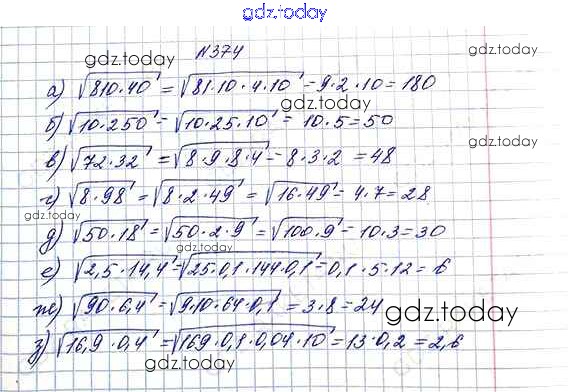 gdz.today
gdz.today
№374
gdz.today
а) √810·40 = √81·10·4·10 = 9·2·10 = 180
gdz.today
б) √10·250 = √10·25·10 = 10·5 = 50
gdz.today
в) √72·32 = √8·9·8·4 = 8·3·2 = 48
г) √8·98 = √8·2·49 = √16·49 = 4·7 = 28
gdz.today
д) √50·18 = √50·2·9 = √100·9 = 10·3 = 30
gdz.today
е) √2,5·14,4 = √25·0,1·144·0,1 = 0,1·5·12 = 6
ж) √90·6,4 = √9·10·64·0,1 = 3·8 = 24
gdz.today
з) √16,9·0,4 = √169·0,1·0,04·10 = 13·0,2 = 2,6
gdz.today